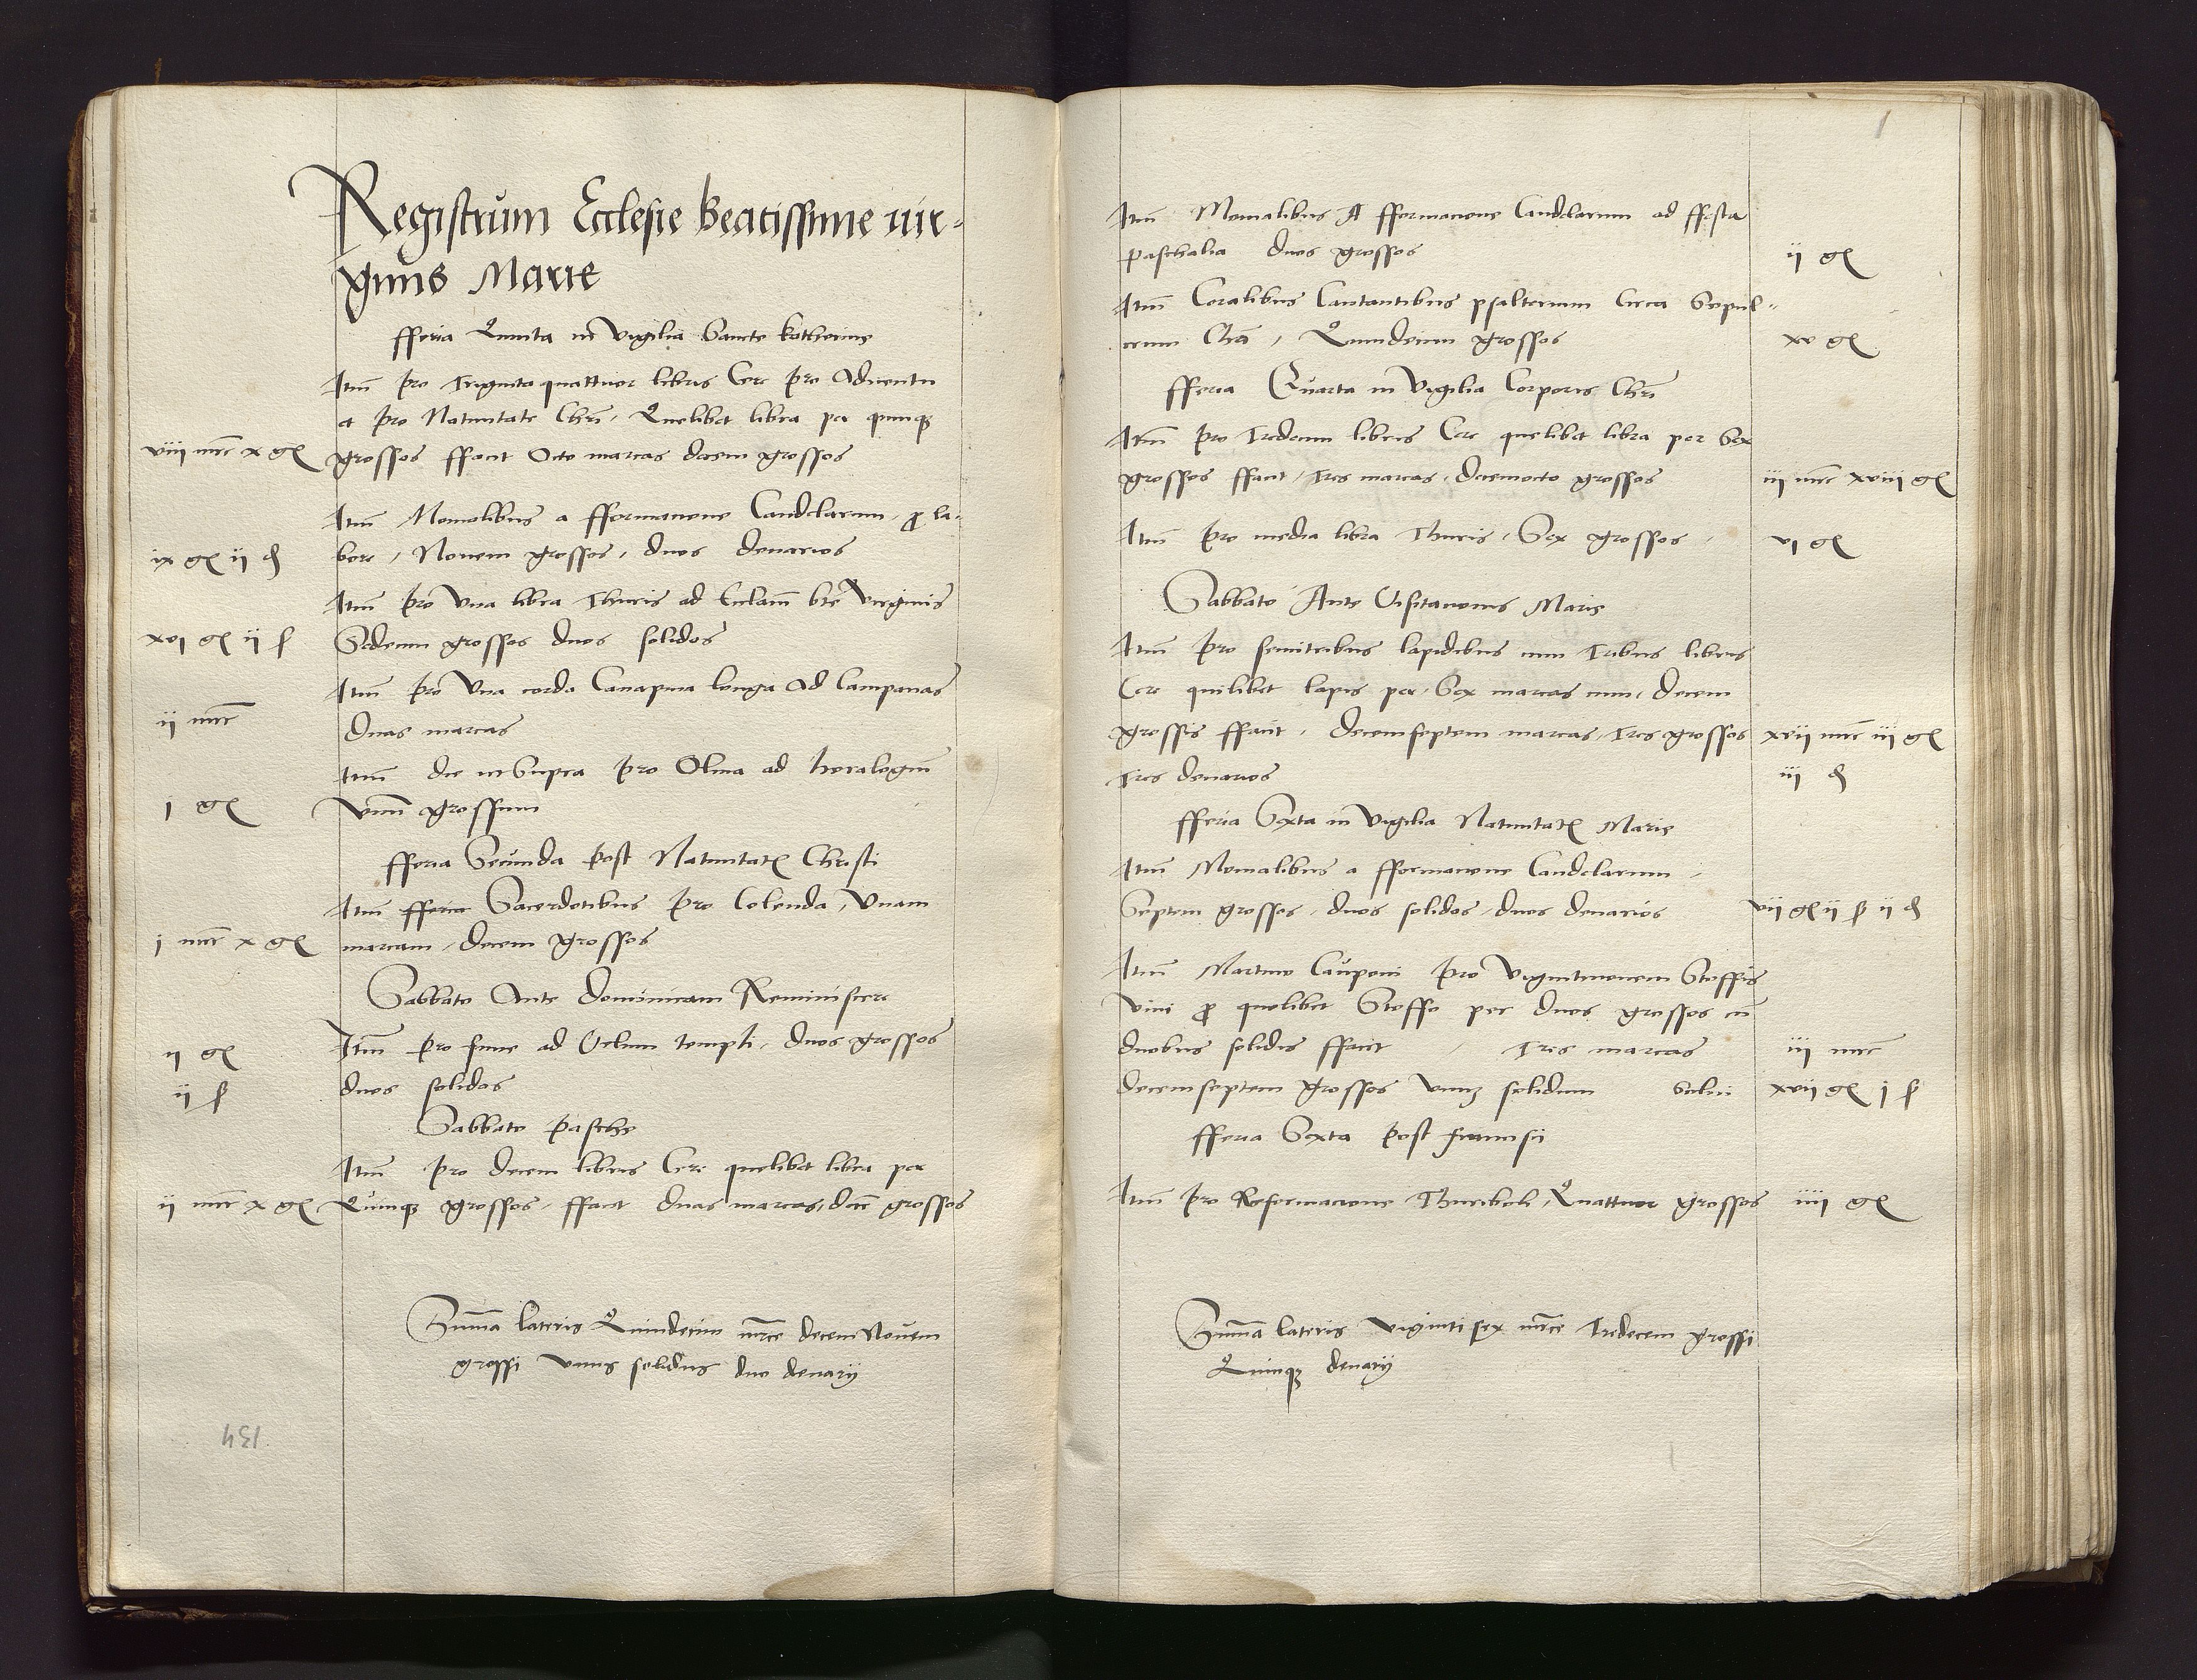 Registrum Ecclesie Beatissime vir-
ginis Marie
fferia Quinta in vigilia Sancte katherine
Itm̄ pro Triginta quattuor libris Cere pro Aduentu
et pro Natiuitate Chrī, Quelibet libra per quinqȝ
viij mrc x gr grossos ffaciut Octo marcas decem grossos
Itm̄ Monialibus a fformacione Candelarum, p la-
ix gr ij d bore, Nouem grossos, duos denarios
Itm̄ pro Vna libra Thuris ad Ecclaīm btē Virginis
xvj gr ij ß Sedecim grossos duos solidos
Itm̄ pro Vna corda Canapina longa ad Campanas
ij mrc duas marcas
Itm̄ die ut Supra pro Oliua ad horalogiū
j gr vnū grossum
fferia Secunda post Natiuitatꝭ Christi
Itm̄ fferia Sacerdotibus pro Colenda, Vnam
j mrc x gr marcam, decem grossos
Sabbato Ante dominicam Reminiscere
ij gr Itm̄ pro fune ad Velum templi, duos grossos
ij ß duos solidos
Sabbato pasche
Itm̄ pro decem libris Cere quelibet libra per
ij mrc x gr Quinqȝ grossos, ffaciut duas marcas, decē grossos
Sum̄a lateris Quindecim mrce decem Nouem
grossi vnus solidus duo denarij
134
1
Itm̄ Monialibus A fformacione Candelarum ad ffesta
paschalia duos grossos ij gr
Itm̄ Coralibus Cantantibus psalterium Circa Sepul-
crum Chrī, Quindecim grossos xv gr
fferia Quarta in Vigilia Corporis Chrī
Itm̄ pro Tredecim libris Cere quelibet libra per Sex
grossos ffaciut, Tres marcas, decemocto grossos iij mrc xviij gr
Itm̄ pro media libra Thuris, Sex grossos vj gr
Sabbato Ante Visitacionis Marie
Itm̄ pro semitribus lapidibus cum Tribus libris
Cere quilibet lapis per, Sex marcas cum, decem
grossis ffaciūt, decemseptem marcas, Tres grossos xvij mrc iij gr
Tres denarios iij d
fferia Sexta in Vigilia Natiuitatꝭ Marie
Itm̄ Monialibus a fformacione Candelarum
Septem grossos, duos solidos, duos denarios vij gr ij ß ij d
Itm̄ Martino Cauponi pro Vigintinouem Stoffis
vini p quolibet Stoffo per duos grossos cū
duobus solidis ffaciut Tres marcas iij mrc
decemseptem grossos vnuȝ solidum Solui xvij gr j ß
fferia Sexta post francisci
Itm̄ pro Reformacione Thuribuli, Quattuor grossos iiij gr
Sum̄a lateris viginti sex mrce Tredecem grossi
Quinqȝ denarij